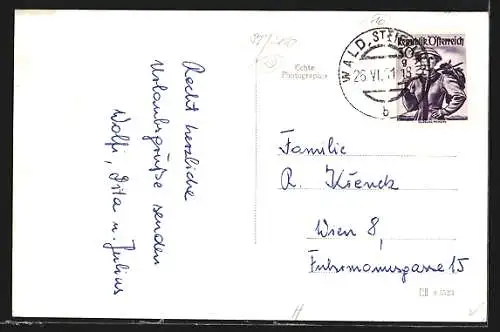 Recht herzliche
Urlaubsgrüße senden
Wolfi, Dita u. Julius
Echte
Photographie
WALD, STEI
26.VI.51 18
b
Republik Österreich
Familie
R. Křenek
Wien 8,
Fuhrmannsgasse 15